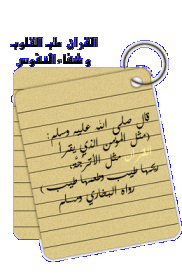 القران طب القلوب
وشفاء النفوس
قال صلى الله عليه وسلم:
(مثل المؤمن الذي يقرأ
القرآن مثل الأترجة،
ريحها طيب وطعمها طيب)
رواه البخاري ومسلم